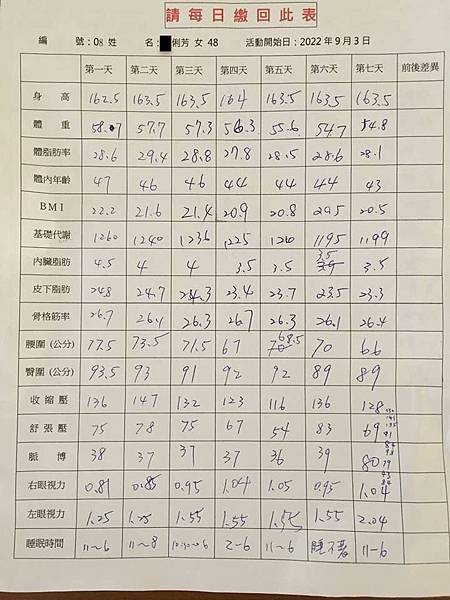 請每日繳回此表
編 號:08 姓 名: 俐芳 女 48 活動開始日:2022年9月3日
第一天 第二天 第三天 第四天 第五天 第六天 第七天 前後差異
身高 162.5 163.5 163.5 164 163.5 163.5 163.5
體重 58.7 57.7 57.3 56.3 55.6 54.7 54.8
體脂肪率 28.6 29.4 28.8 27.8 28.5 28.6 28.1
體內年齡 47 46 46 44 44 44 43
BMI 22.2 21.6 21.4 20.9 20.8 20.5 20.5
基礎代謝 1260 1240 1236 1225 1195 1199
內臟脂肪 4.5 4 4 3.5 3.5 3.5 3.5
皮下脂肪 24.8 24.7 24.3 23.4 23.7 23.5 23.3
骨格筋率 26.7 26.1 26.3 26.7 26.3 26.1 26.4
腰圍(公分) 77.5 73.5 71.5 67 68.5 70 66
臀圍(公分) 93.5 93 91 92 92 89 89
收縮壓 136 147 132 123 116 136 128
舒張壓 75 78 75 67 54 83 69
脈博 38 37 37 37 36 39 80
右眼視力 0.81 0.85 0.95 1.04 1.05 0.95 1.04
左眼視力 1.25 1.25 1.55 1.55 1.55 1.55 2.04
睡眠時間 11~6 11~8 10:30~6 2-6 11~6 睡不著 11-6